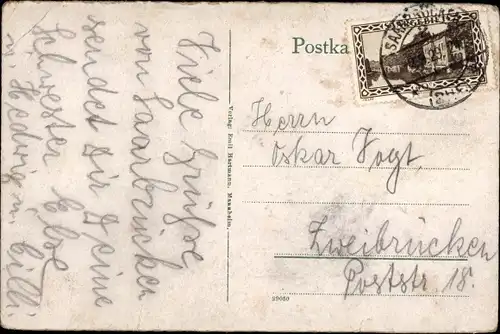 Viele Grüße
von Saarbrücken
sendet dir Deine
Schwester Else
u. Hedwig u. Cilli
Verlag: Emil Hartmann, Mannheim.
Postka
SAARGEBIET
Herrn
Oskar Vogt.
Zweibrücken
Poststr. 18.